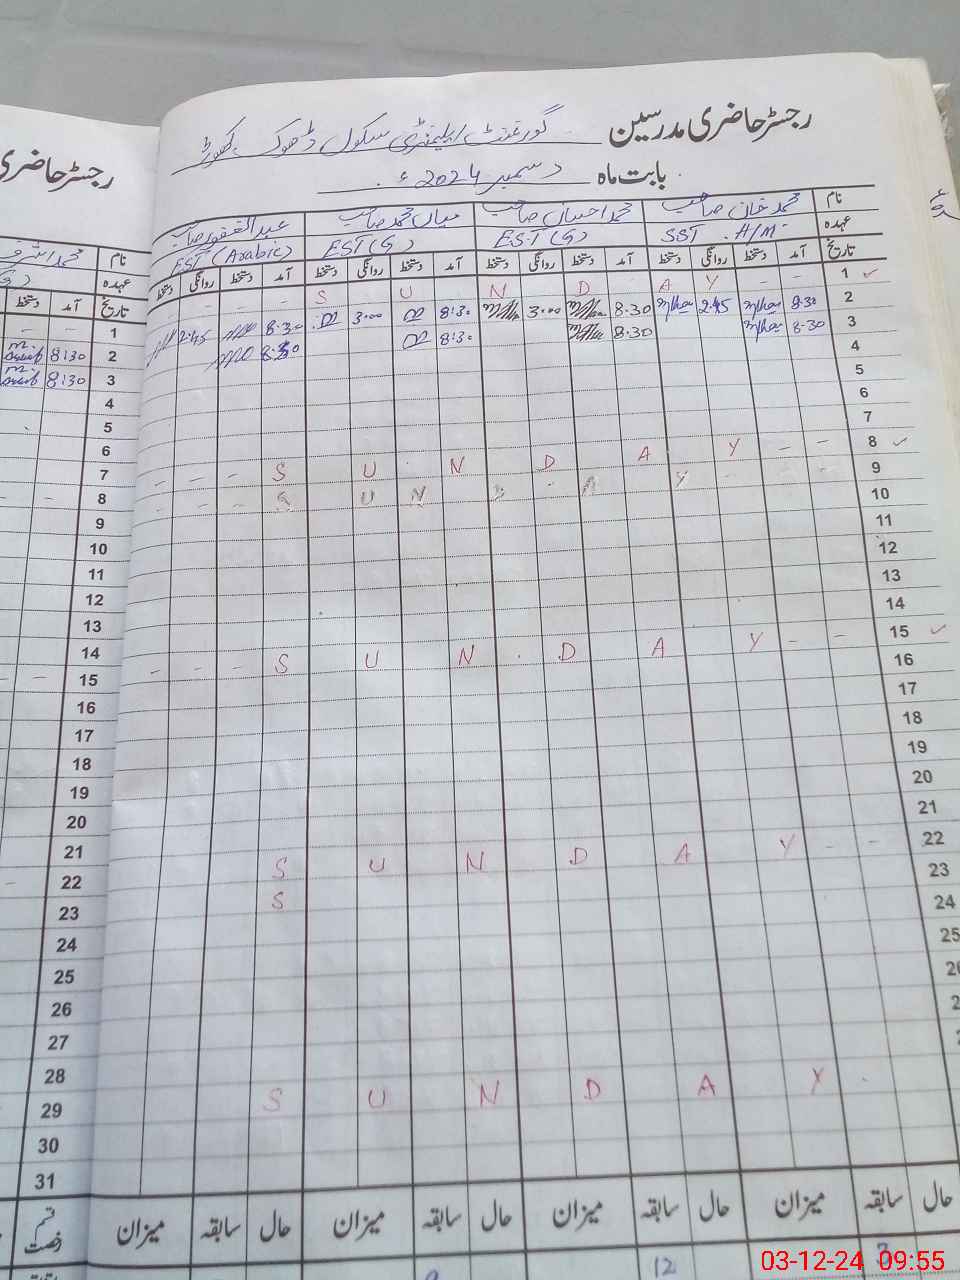 رجسٹر حاضری مدرسین گورنمنٹ ایلیمنٹری سکول ڈھوک
بابت ماہ دسمبر 2024ء
نام محمد خان صاحب محمد احسان صاحب میاں محمد صاحب عبدالغفور صاحب
عہدہ SST A/M EST (G) EST (G) EST (Arabic)
تاریخ آمد دستخط روانگی دستخط آمد دستخط روانگی دستخط آمد دستخط روانگی دستخط آمد دستخط روانگی دستخط
1 - - S U N D A Y - - - ✓
2 8.30 2.45 8.30 3.00 8:30 3.00 8.30 2.45
3 8.30 8.30 8:30 8.30
4
5
6
7
8 - - - S U N D A Y - - ✓
9 S U N D A Y
10
11
12
13
14
15 - - - S U N D A Y - - ✓
16
17
18
19
20
21
22 S U N D A Y - -
23 S
24
25
S U N D A Y
حال سابقہ میزان حال سابقہ میزان حال سابقہ میزان حال سابقہ میزان
3 12
رجسٹر حاضری
نام محمد اشرف
عہدہ
تاریخ آمد دستخط
1 - -
2 8:30
3 8:30
4
5
6
7
8 - -
9
10
11
12
13
14
15 - -
16
17
18
19
20
21
22 -
23
24
25
26
27
28
29
30
31
قسم رخصت
03-12-24 09:55